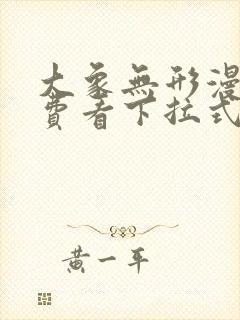 大象無形漫
費者下拉式
黃一平